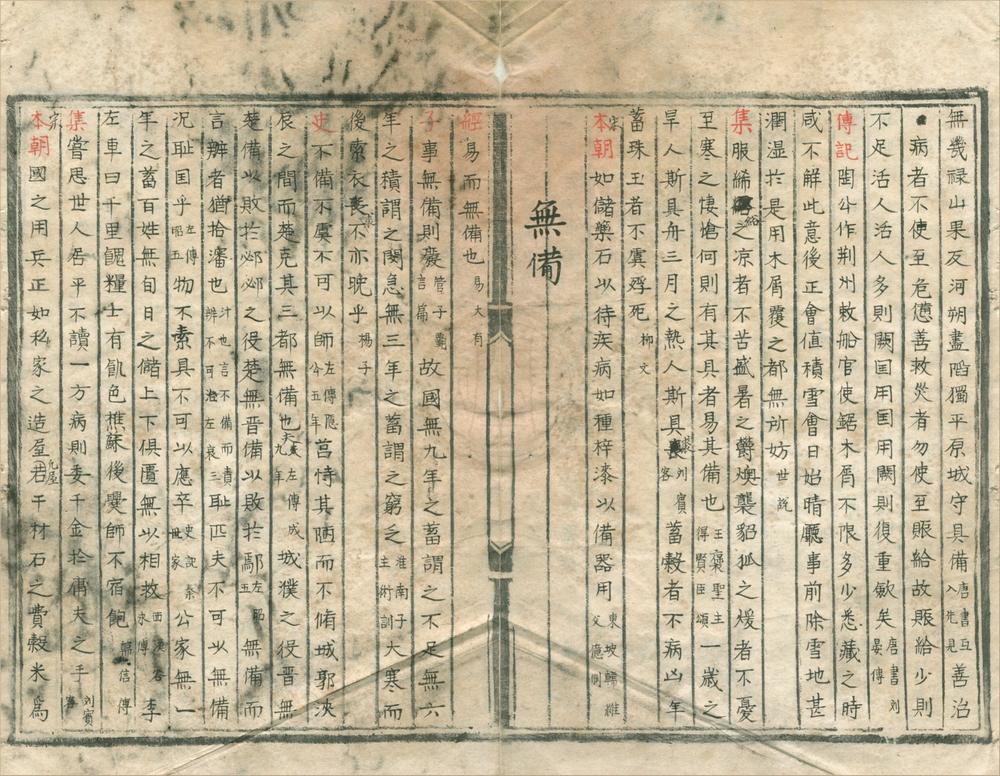 無幾禄山果反河朔盡䧟獨平原城守具備唐書五入先見善治
病者不使至危憊善救災者勿使至賑給故賑給少則
不足活人活人多則闕囯用囯用闕則復重斂矣唐書刘晏傳
傳記陶公作荆州敕船官使鋸木屑不限多少悉藏之時
咸不解此意後正會值積雪會日始晴廳事前除雪地甚
潤湿於是用木屑覆之都無所妨世說
集服絺綌之凉者不苦盛暑之欝燠襲貂狐之煖者不憂
至寒之悽愴何則有其具者易其備也王襃聖主得賢臣頌一歲之
旱人斯具舟三月之熱人斯具裘刘賓客蓄糓者不病凶年
蓄珠玉者不虞殍死柳文
宋本朝如儲藥石以待疾病如種梓漆以備器用東坡
無備
經易而無備也易大有
子事無備則廢管子霸言篇故國無九年之蓄謂之不足無六
年之積謂之閔急無三年之蓄謂之窮乏淮南子主術訓大寒而
後索衣裘不亦晚乎揚子
史不備不虞不可以師左傳隱公五年莒恃其陋而不脩城郭浹
辰之間而楚克其三都無備也夫左傳成九年城濮之役晋無
楚備以敗於邲邲之役楚無晋備以敗於鄢左昭五無備而
言辨者猶拾瀋也汁也言不備而責辨不可渙左哀三耻匹夫不可以無備
况耻囯乎左傳昭五物不素具不可以應卒史記秦世家公家無一
年之蓄百姓無旬日之儲上下俱匱無以相救西漢谷永傳李
左車曰千里餽糧士有飢色樵蘇後爨師不宿飽韓信傳
集嘗思世人居平不讀一方病則委千金於庸夫之手刘賓客
宋本朝國之用兵正如私家之造屋凡屋若干材石之費糓米爲